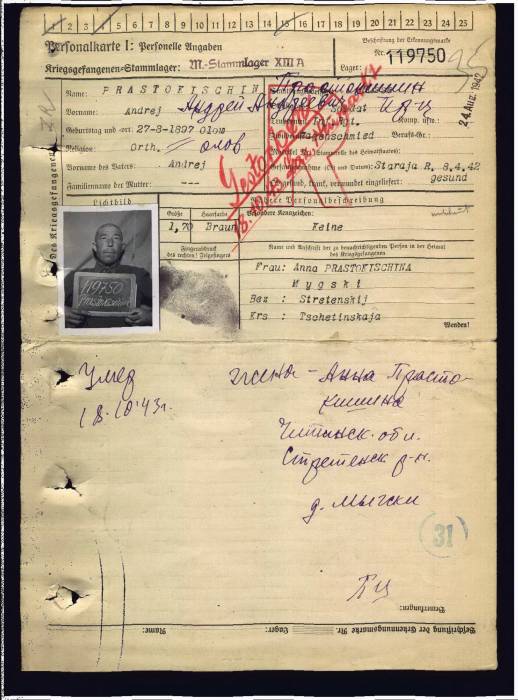 1 2 3 4 5 6 7 8 9 10 11 12 13 14 15 16 17 18 19 20 21 22 23 24 25
Personalkarte I: Personelle Angaben
Beschriftung der Erkennungsmarke
Kriegsgefangenen-Stammlager: M.-Stammlager XIII A
Nr. 119750
Lager:
24. AUG. 1942
Des Kriegsgefangenen
Name: PRASTOKISCHIN
Прастокишин
Vorname: Andrej
Андрей Андреевич
Soldat
Geburtstag und -ort 27-8-1897 Olow
Komp. usw.:
Religion: Orth.
Олов
Beruf:
Vorname des Vaters: Andrej
Staraja R. 8.4.42
Familienname der Mutter: ---
gesund
Gestorben
18.10.43
Lichtbild
Nähere Personalbeschreibung
Größe
Haarfarbe
Besondere Kennzeichen:
1,70
Braun
Keine
Fingerabdruck
des rechten! Zeigefingers
Name und Anschrift der zu benachrichtigenden Person in der Heimat
des Kriegsgefangenen
Frau: Anna PRASTOKISCHINA
Mygski
Bez : Stretenskij
Krs : Tschetinskaja
Wenden!
119750
Умер
18.10.43г.
жена - Анна Прасто-
кишина
Читинск. обл.
Стретенск р-н.
д. Мыгски
31
Bemerkungen:
Beschriftung der Erkennungsmarke Nr.
Lager:
Name: